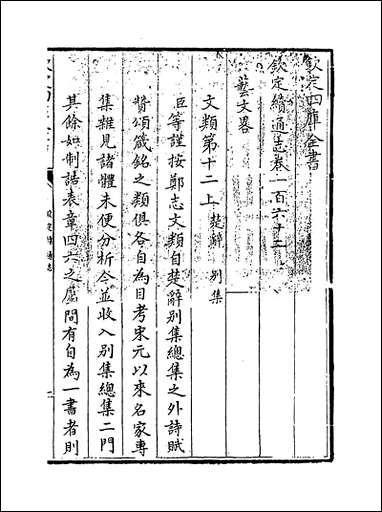 欽定四庫全書
欽定續通志卷一百六十三
藝文畧
文類第十二上 楚辭 別集
臣等謹按鄭志文類自楚辭別集總集之外詩賦
贊頌箴銘之類俱各自為目考宋元以來名家專
集雜見諸體未便分析今並收入別集總集二門
其餘如制誥表章四六之屬間有自為一書者則